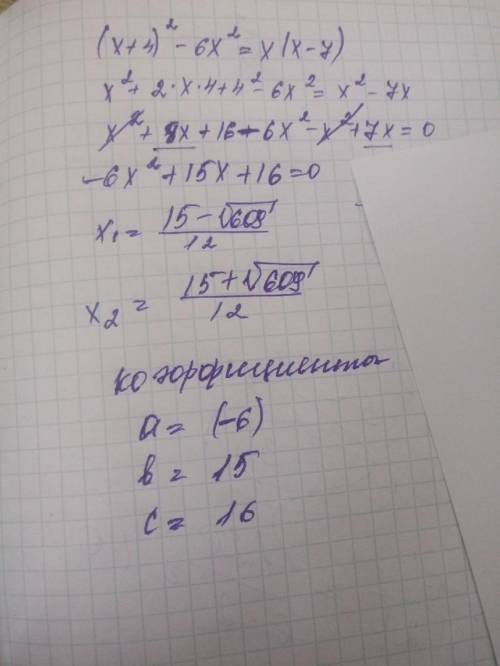 (x+4)² - 6x² = x(x-7)
x² + 2·x·4+4² - 6x² = x² - 7x
x² + 8x + 16 - 6x² - x² + 7x = 0
-6x² + 15x + 16 = 0
x₁ = (15 - √609)/12
x₂ = (15 + √609)/12
коэффициенты
a = (-6)
b = 15
c = 16